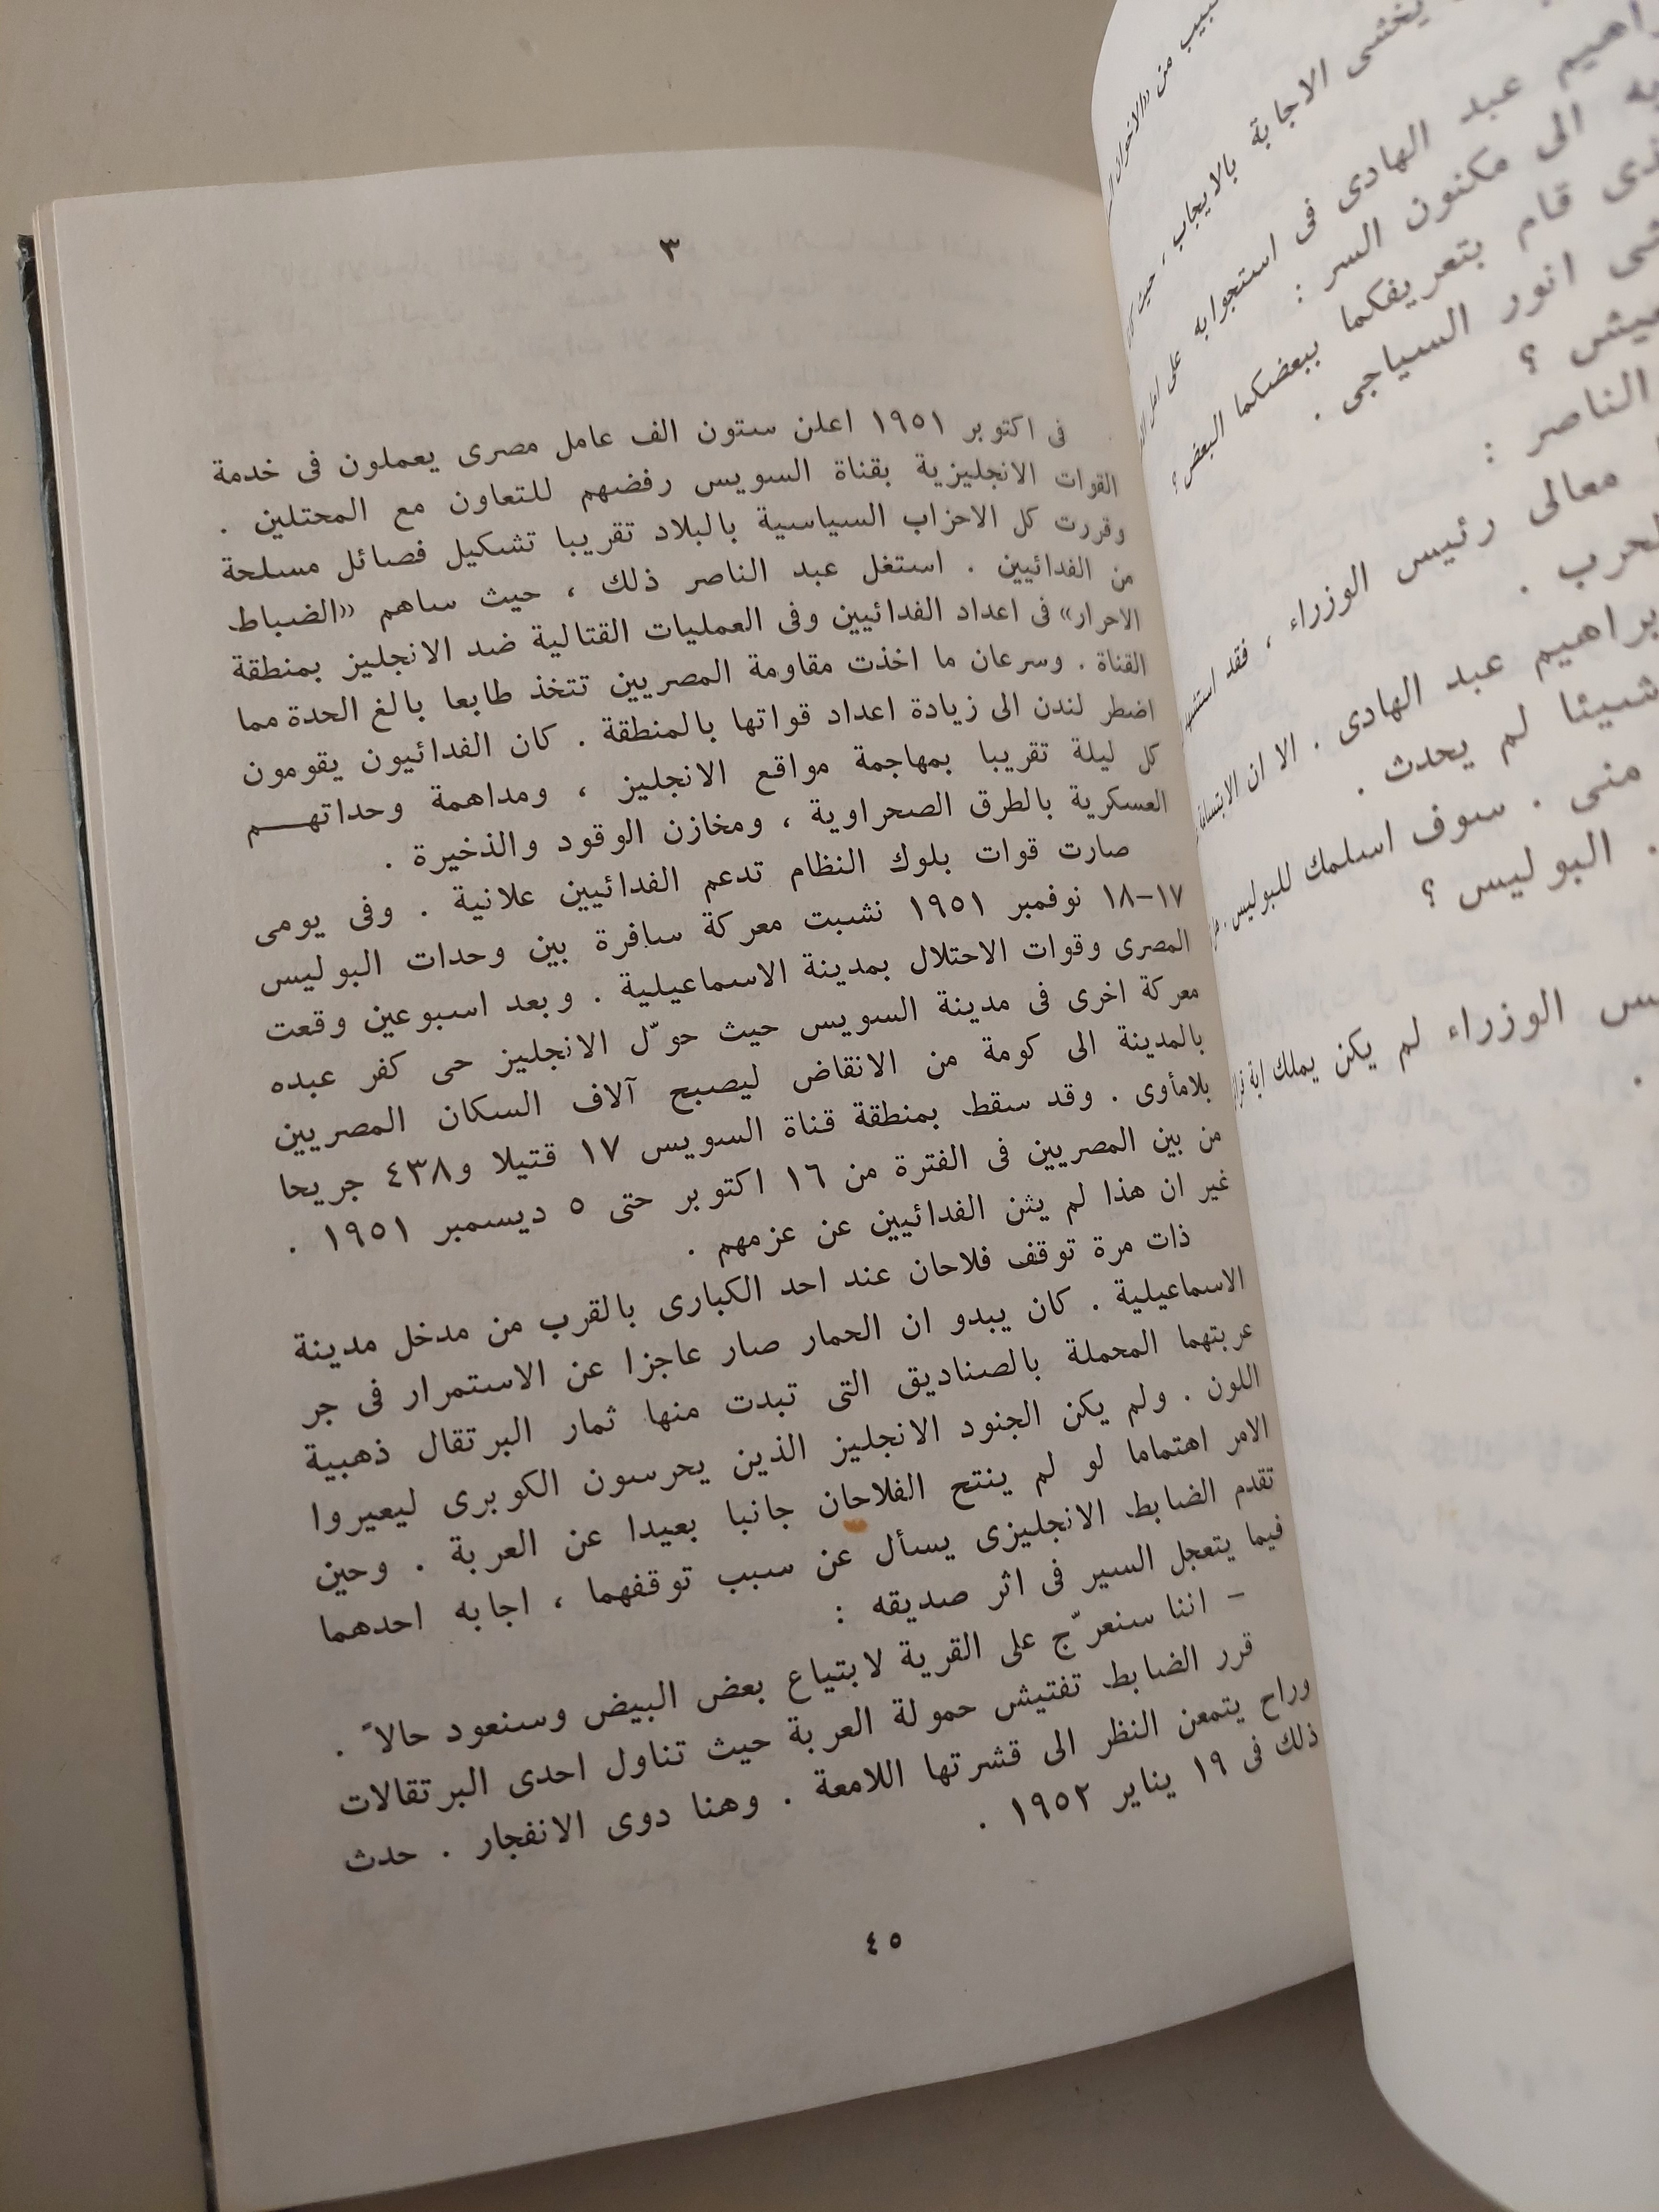 من «الاخوان
يخشى الاجابة بالايجاب ، حيث
عبد الهادى فى استجوابه على
به الى مكنون السر :
قام بتعريفكما ببعضكما البعض ؟
انور السياجى .
؟
الناصر :
معالى رئيس الوزراء ، فقد
.
عبد الهادى . الا ان
شيئا لم يحدث .
منى . سوف اسلمك للبوليس .
. البوليس ؟
الوزراء لم يكن يملك اية
.
٣
فى اكتوبر ١٩٥١ اعلن ستون الف عامل مصرى يعملون فى خدمة
القوات الانجليزية بقناة السويس رفضهم للتعاون مع المحتلين .
وقررت كل الاحزاب السياسية بالبلاد تقريبا تشكيل فصائل مسلحة
من الفدائيين . استغل عبد الناصر ذلك ، حيث ساهم «الضباط
الاحرار» فى اعداد الفدائيين وفى العمليات القتالية ضد الانجليز بمنطقة
القناة . وسرعان ما اخذت مقاومة المصريين تتخذ طابعا بالغ الحدة مما
اضطر لندن الى زيادة اعداد قواتها بالمنطقة . كان الفدائيون يقومون
كل ليلة تقريبا بمهاجمة مواقع الانجليز ، ومداهمة وحداتهــم
العسكرية بالطرق الصحراوية ، ومخازن الوقود والذخيرة .
صارت قوات بلوك النظام تدعم الفدائيين علانية . وفى يومى
١٧-١٨ نوفمبر ١٩٥١ نشبت معركة سافرة بين وحدات البوليس
المصرى وقوات الاحتلال بمدينة الاسماعيلية . وبعد اسبوعين وقعت
معركة اخرى فى مدينة السويس حيث حوّل الانجليز حى كفر عبده
بالمدينة الى كومة من الانقاض ليصبح آلاف السكان المصريين
بلامأوى . وقد سقط بمنطقة قناة السويس ١٧ قتيلا و٤٣٨ جريحا
من بين المصريين فى الفترة من ١٦ اكتوبر حتى ٥ ديسمبر ١٩٥١ .
غير ان هذا لم يثن الفدائيين عن عزمهم .
ذات مرة توقف فلاحان عند احد الكبارى بالقرب من مدخل مدينة
الاسماعيلية . كان يبدو ان الحمار صار عاجزا عن الاستمرار فى جر
عربتهما المحملة بالصناديق التى تبدت منها ثمار البرتقال ذهبية
اللون . ولم يكن الجنود الانجليز الذين يحرسون الكوبرى ليعيروا
الامر اهتماما لو لم ينتح الفلاحان جانبا بعيدا عن العربة . وحين
تقدم الضابط الانجليزى يسأل عن سبب توقفهما ، اجابه احدهما
فيما يتعجل السير فى اثر صديقه :
– اننا سنعرّج على القرية لابتياع بعض البيض وسنعود حالاً .
قرر الضابط تفتيش حمولة العربة حيث تناول احدى البرتقالات
وراح يتمعن النظر الى قشرتها اللامعة . وهنا دوى الانفجار . حدث
ذلك فى ١٩ يناير ١٩٥٢ .
٤٥